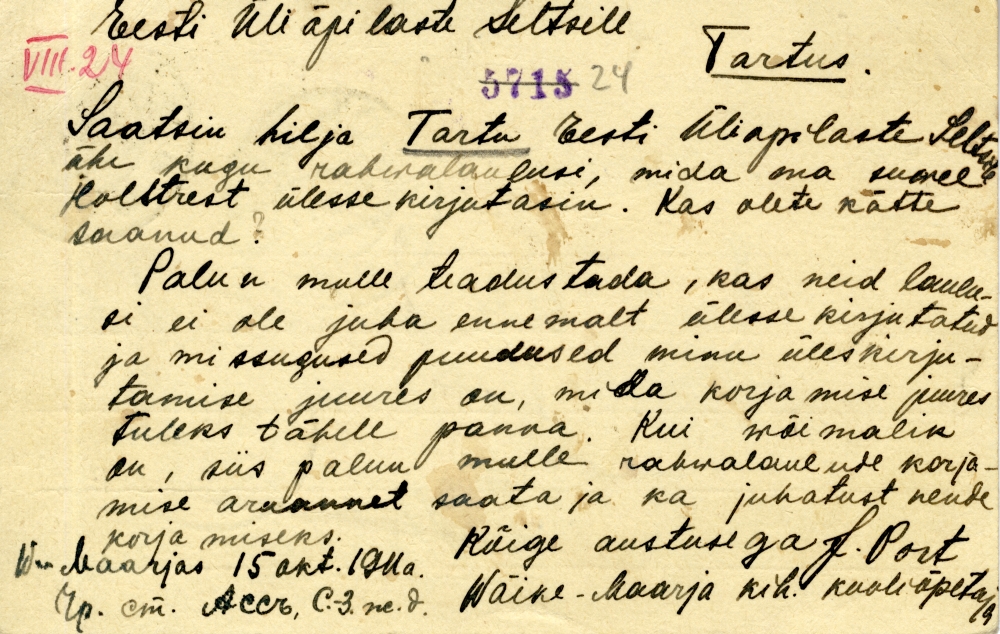 Eesti Üliõpilaste Seltsile
Tartus.
VIII.24
5715 24
Saatsin hilja Tartu Eesti Üliõpilaste Seltsile
ühe kogu rahwalaulusi, mida ma suwel
Holstrest ülesse kirjutasin. Kas olete kätte
saanud?
Palun mulle teadustada, kas neid laulu-
si ei ole juba ennemalt ülesse kirjutatud
ja missugused puudused minu üleskirju-
tamise juures on, mida korjamise juures
tuleks tähele panna. Kui wõimalik
on, siis palun mulle rahwalaulude korja-
mise aruannet saata ja ka juhatust nende
korjamiseks.
Kõige austusega J. Port
W-Maarjas 15 okt. 1911a.
Wäike-Maarja kih. kooliõpetaja
Чр. ст. Ассъ, С.-З. ж. д.